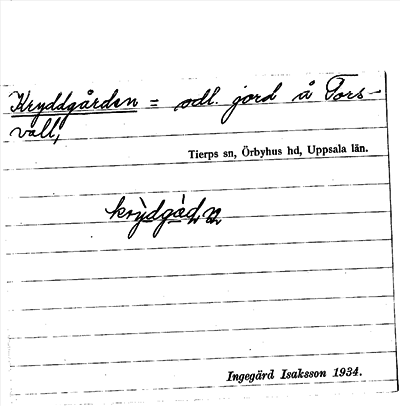 Kryddgården = odl. jord å Tors-
vall,
Tierps sn, Örbyhus hd, Uppsala län.
krỳdgàdn
Ingegärd Isaksson 1934.